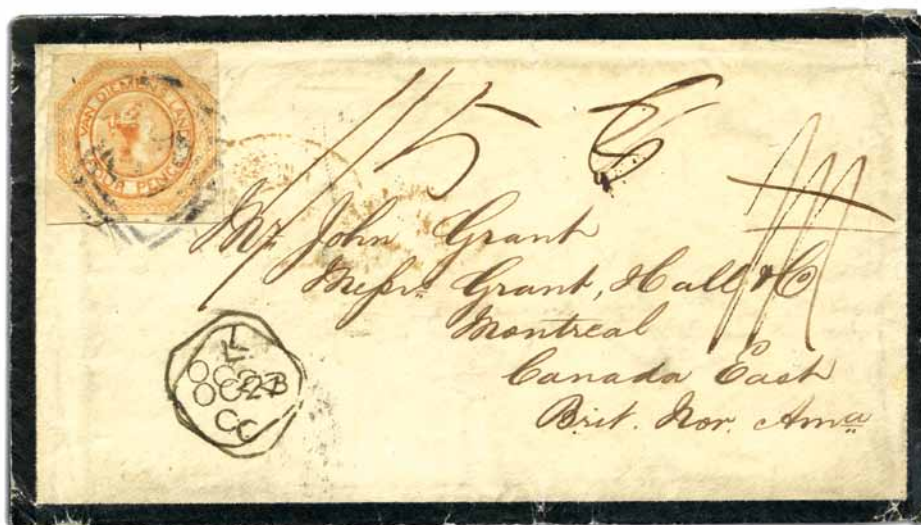 VAN DIEMENS LAND
FOUR PENCE
1/5
Mr. John Grant
Messrs. Grant, Hall & Co
Montreal
Canada East
Brit. Nor. Ama
CC